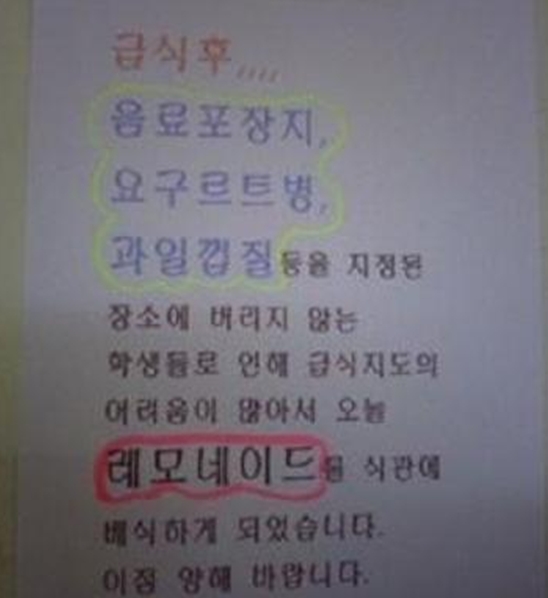 급식후,,,,
음료포장지,
요구르트병,
과일껍질등을 지정된
장소에 버리지 않는
학생들로 인해 급식지도의
어려움이 많아서 오늘
레모네이드를 식판에
배식하게 되었습니다.
이점 양해 바랍니다.